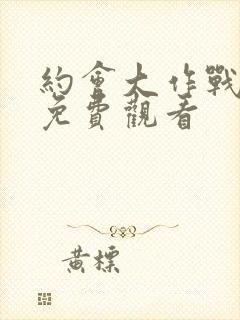 約會大作戰
免費觀看
黃標